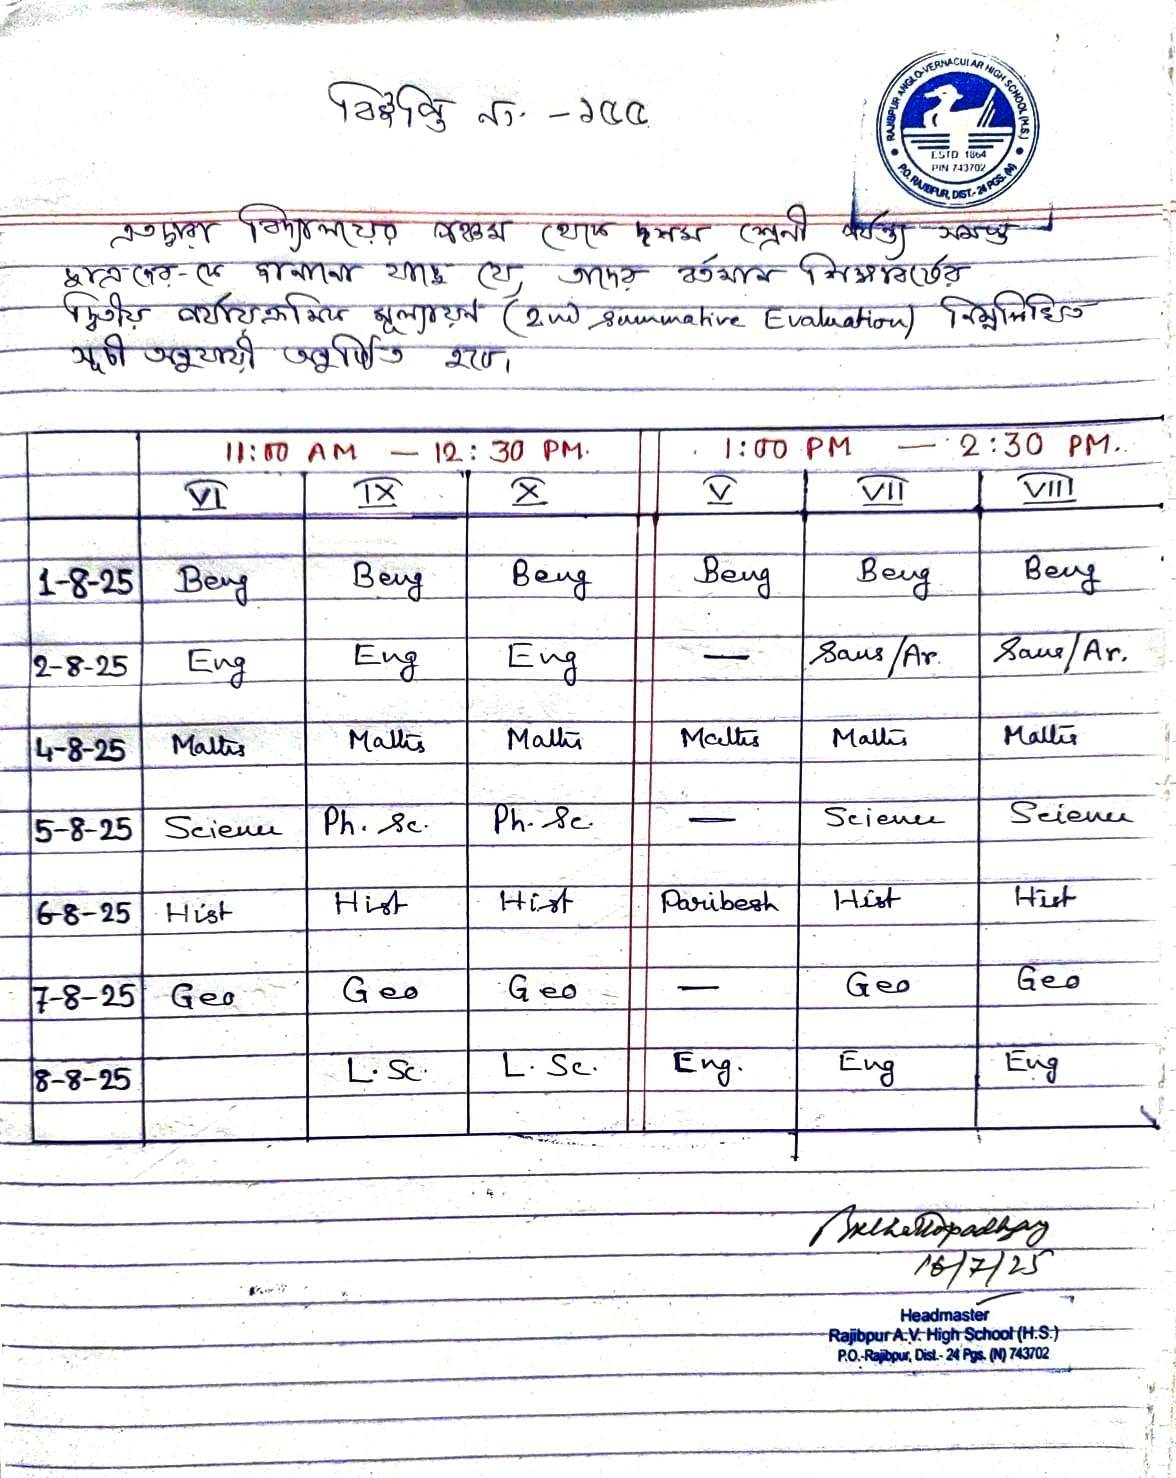 বিজ্ঞপ্তি নং. - ১৫৫
RAJIBPUR ANGLO-VERNACULAR HIGH SCHOOL (H.S.)
ESTD 1864
PIN 743702
P.O. RAJIBPUR, DIST.- 24 PGS. (N)
এতদ্বারা বিদ্যালয়ের পঞ্চম থেকে দশম শ্রেনী পর্যন্ত সমস্ত
ছাত্রদের-কে জানানো যাচ্ছে যে, তাদের বর্তমান শিক্ষাবর্ষের
দ্বিতীয় পর্যায়ক্রমিক মূল্যায়ণ (2nd Summative Evaluation) নিম্নলিখিত
সূচী অনুযায়ী অনুষ্ঠিত হবে।
11:00 AM — 12:30 PM. 1:00 PM — 2:30 PM.
VI IX X V VII VIII
1-8-25 Beng Beng Beng Beng Beng Beng
2-8-25 Eng Eng Eng — Sans/Ar. Sans/Ar.
4-8-25 Maths Maths Maths Maths Maths Maths
5-8-25 Science Ph. Sc. Ph. Sc. — Science Science
6-8-25 Hist Hist Hist Paribesh Hist Hist
7-8-25 Geo Geo Geo — Geo Geo
8-8-25 L. Sc. L. Sc. Eng. Eng Eng
16/7/25
Headmaster
Rajibpur A.V. High School (H.S.)
P.O.-Rajibpur, Dist.- 24 Pgs. (N) 743702